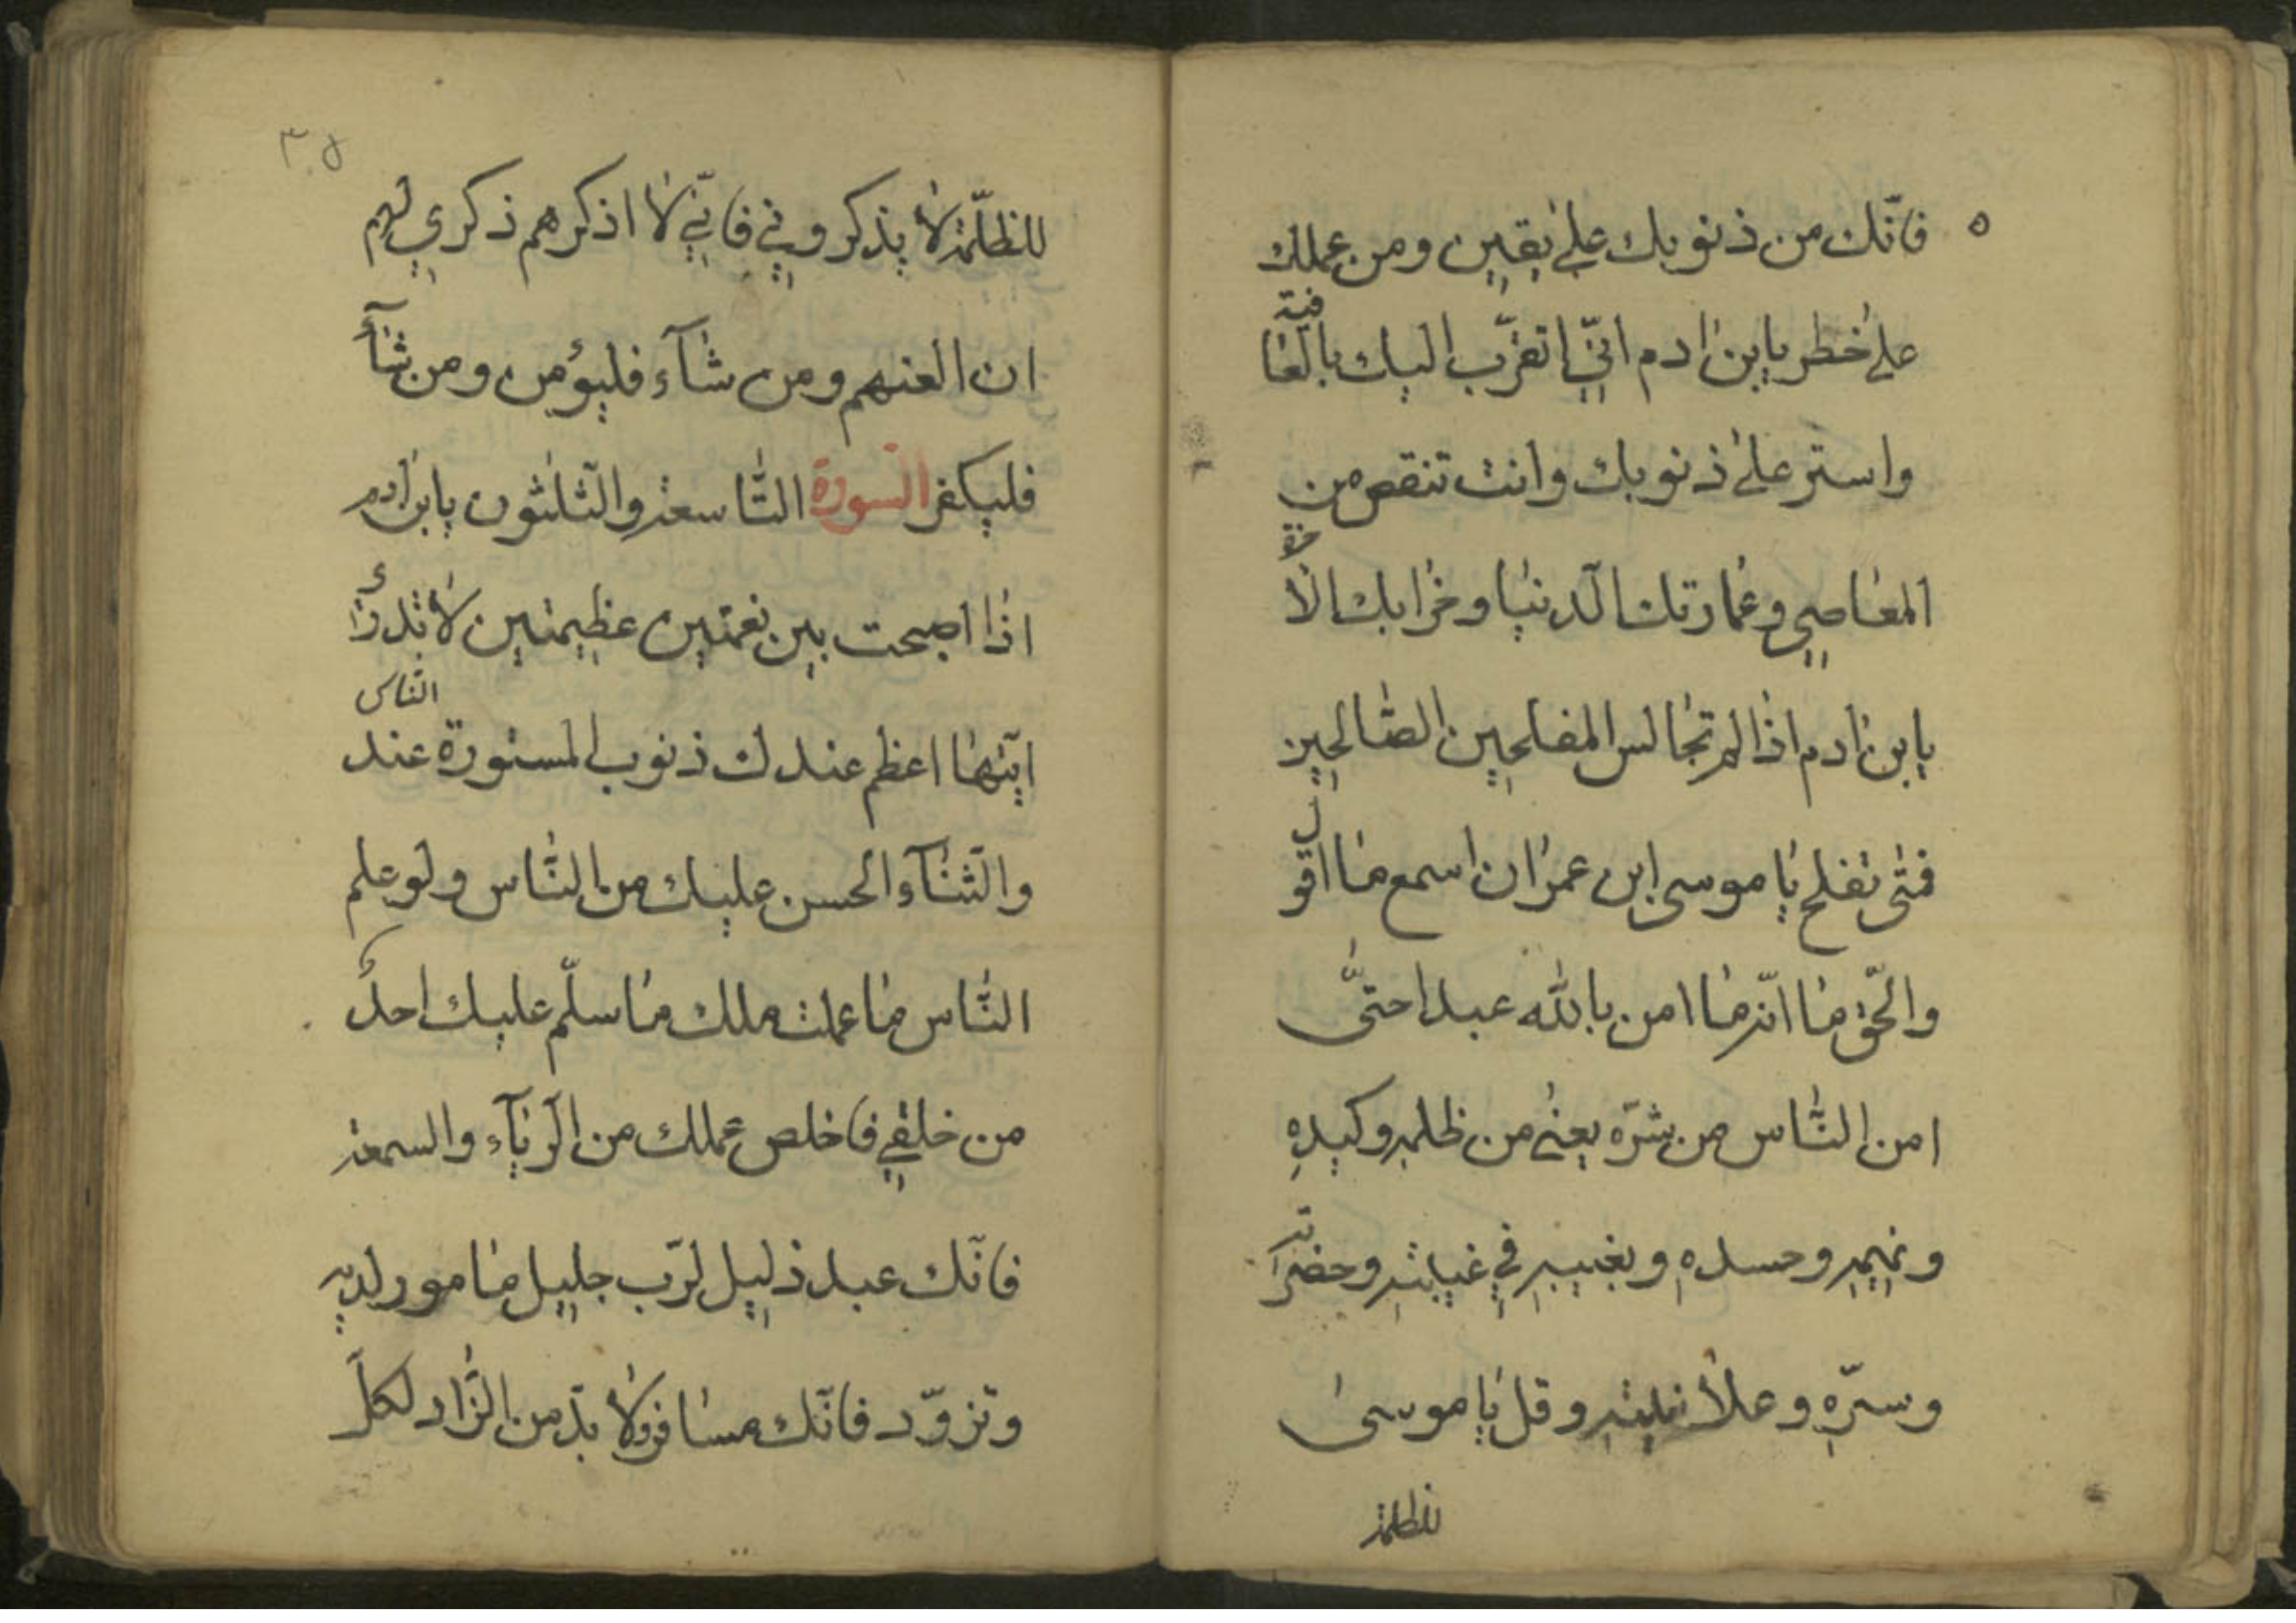 فانّك من ذنوبك على يقين ومن عملك
على خطر يابن ادم انّي اتقرّب اليك بالعافية
واستر على ذنوبك وانت تنقص من
المعاصي وعمارتك الّدنيا وخرابك الاخرة
يابن ادم اذا لم تجالس المفلحين الصّالحين
فمتى تفلح يا موسى ابن عمران اسمع ما اقول
والحّق ما انّه ما امن بالله عبدا حتّى
امن النّاس من شرّه يعني من ظلمه وكيده
ونميمه وحسده وبغيبه في غيبته وحضراته
وسرّه وعلانيته وقل يا موسى
للظلمة
٣٨
للظلّمة لا يذكروني فانّي لا اذكرهم ذكري لهم
ان العنهم ومن شآء فليؤمن ومن شآء
فليكفر السّورة التّاسعة والثّلثون يابن ادم
اذا اصبحت بين نعمتين عظيمتين لا تدرأ
ايّتهما اعظم عندك ذنوب المستورة عند الناس
والثّنآء الحسن عليك من النّاس ولو علم
النّاس ما علمت ملك ما سلّم عليك احد
من خلقي فاخلص عملك من الّريآء والسمعة
فانّك عبد ذليل لرّب جليل مامور لديه
وتزوّد فانّك مسافر ولا بدّ من الزّاد لكلّ